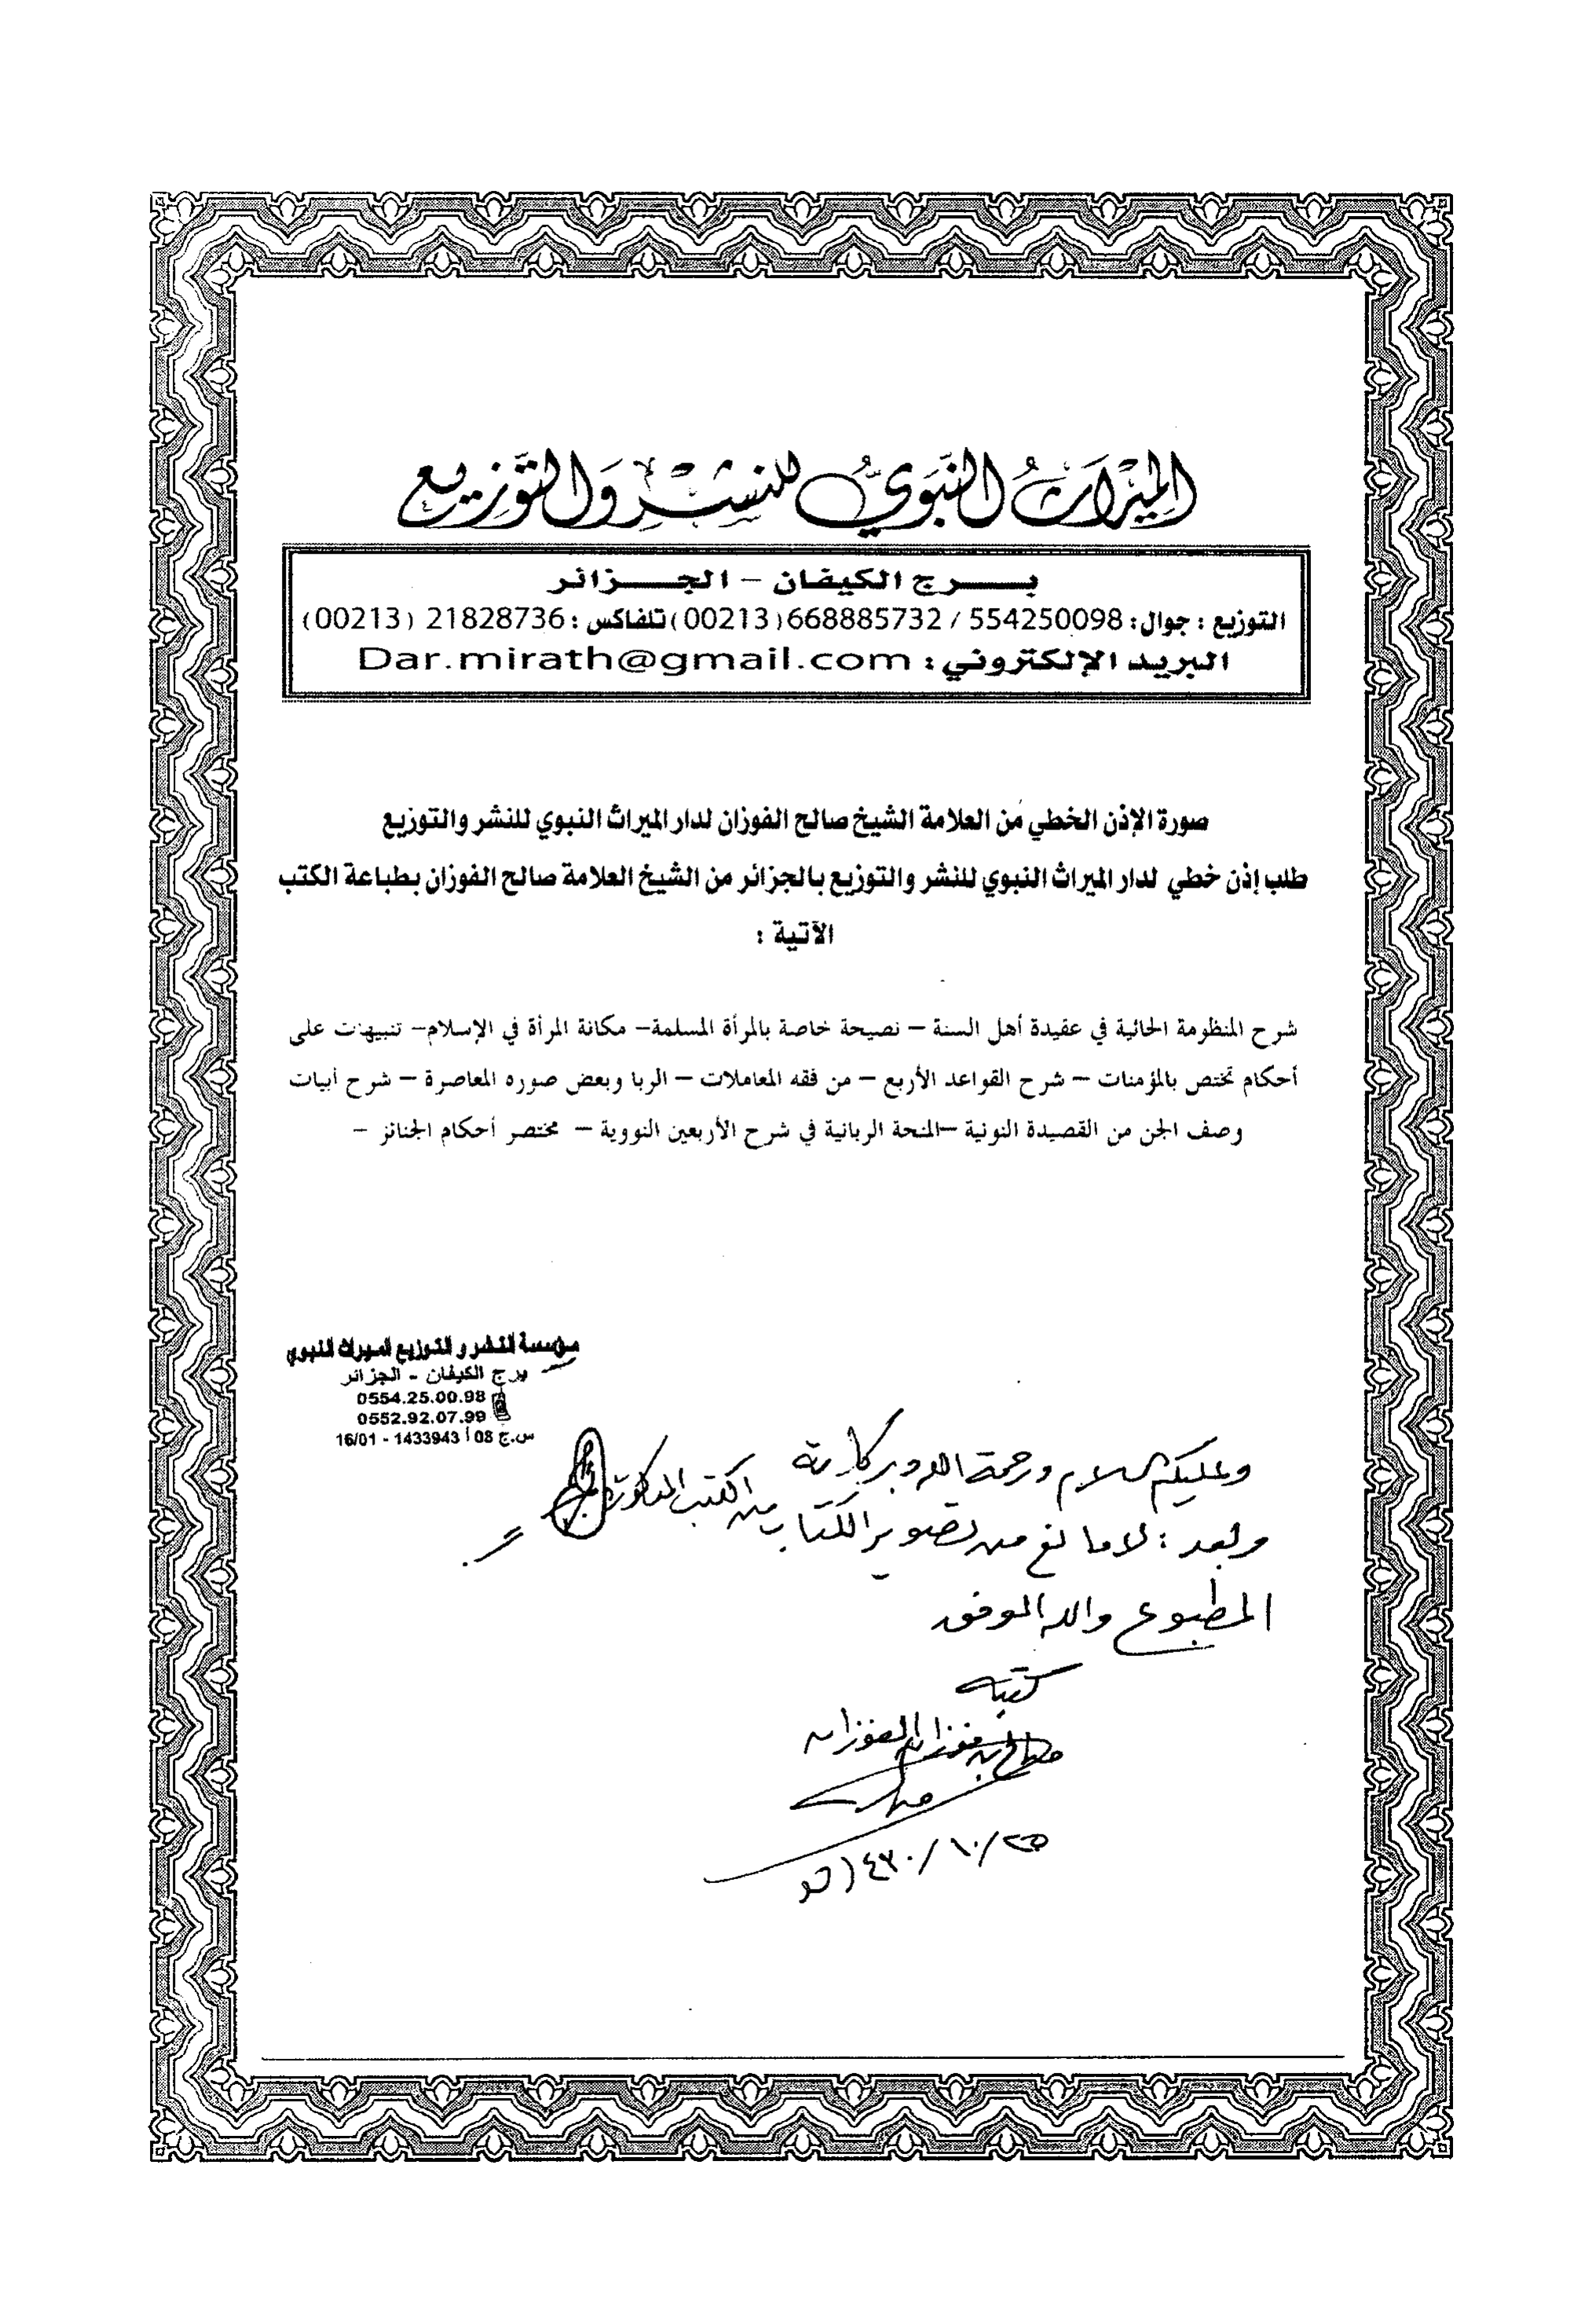 الميراث النبوي للنشر والتوزيع
بـرج الكيفان – الجـزائر
التوزيع : جوال: 554250098 / 668885732(00213) تلفاكس : 21828736 (00213)
البريد الإلكتروني : Dar.mirath@gmail.com
صورة الإذن الخطي من العلامة الشيخ صالح الفوزان لدار الميراث النبوي للنشر والتوزيع
طلب إذن خطي لدار الميراث النبوي للنشر والتوزيع بالجزائر من الشيخ العلامة صالح الفوزان بطباعة الكتب
الآتية :
شرح المنظومة الحائية في عقيدة أهل السنة – نصيحة خاصة بالمرأة المسلمة– مكانة المرأة في الإسلام– تنبيهات على
أحكام تختص بالمؤمنات – شرح القواعد الأربع – من فقه المعاملات – الربا وبعض صوره المعاصرة – شرح أبيات
وصف الجن من القصيدة النونية –المنحة الربانية في شرح الأربعين النووية – مختصر أحكام الجنائز –
مؤسسة النشر و التوزيع الميراث النبوي
برج الكيفان - الجزائر
0554.25.00.98
0552.92.07.99
س.ج 08 أ 1433943 - 16/01
وعليكم السلام ورحمة الله وبركاته
وبعد : لا مانع من تصوير الكتاب من الكتب المذكورة
المطبوع والله الموفق
كتبه
صالح بن فوزان الفوزان
٢٥/١٠/١٤٣٠هـ